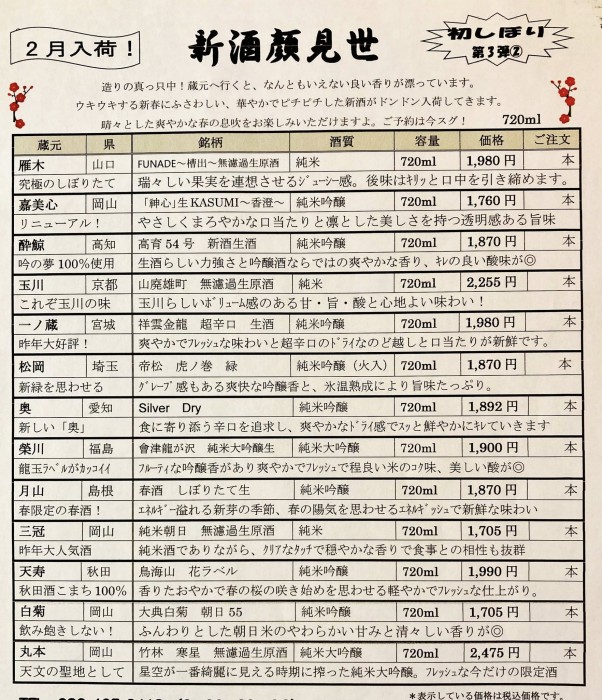 2月入荷！
新酒顔見世
初しぼり
第3弾②
造りの真っ只中！蔵元へ行くと、なんともいえない良い香りが漂っています。
ウキウキする新春にふさわしい、華やかでピチピチした新酒がドンドン入荷してきます。
晴々とした爽やかな春の息吹をお楽しみいただけますよ。ご予約は今スグ！ 720ml
蔵元 県 銘柄 酒質 容量 価格 ご注文
雁木 山口 FUNADE～槽出～無濾過生原酒 純米 720ml 1,980円 本
究極のしぼりたて 瑞々しい果実を連想させるｼﾞｭｰｼｰ感。後味はｷﾘｯと口中を引き締めます。
嘉美心 岡山 「神心」生 KASUMI～香澄～ 純米吟醸 720ml 1,760円 本
リニューアル！ やさしくまろやかな口当たりと凛とした美しさを持つ透明感ある旨味
酔鯨 高知 高育54号 新酒生酒 純米吟醸 720ml 1,870円 本
吟の夢100%使用 生酒らしい力強さと吟醸酒ならではの爽やかな香り、ｷﾚの良い酸味が◎
玉川 京都 山廃雄町 無濾過生原酒 純米 720ml 2,255円 本
これぞ玉川の味 玉川らしいﾎﾞﾘｭｰﾑ感のある甘・旨・酸と心地よい味わい！
一ノ蔵 宮城 祥雲金龍 超辛口 生酒 純米吟醸 720ml 1,980円 本
昨年大好評！ 爽やかでﾌﾚｯｼｭな味わいと超辛口のﾄﾞﾗｲなのど越しと口当たりが新鮮です。
松岡 埼玉 帝松 虎ノ巻 緑 純米吟醸（火入） 720ml 1,870円 本
新緑を思わせる ｸﾞﾚｰﾌﾟ感もある爽快な吟醸香と、氷温熟成により旨味たっぷり。
奥 愛知 Silver Dry 純米吟醸 720ml 1,892円 本
新しい「奥」 食に寄り添う辛口を追求し、爽やかなﾄﾞﾗｲ感でｽｯと鮮やかにｷﾚていきます
榮川 福島 會津龍が沢 純米大吟醸生 純米大吟醸 720ml 1,900円 本
龍玉ﾗﾍﾞﾙがｶｯｺｲｲ ﾌﾙｰﾃｨな吟醸香があり爽やかでﾌﾚｯｼｭで程良い米のｺｸ味、美しい酸が◎
月山 島根 春酒 しぼりたて生 純米吟醸 720ml 1,870円 本
春限定の春酒！ ｴﾈﾙｷﾞｰ溢れる新芽の季節、春の陽気を思わせるｴﾈﾙｷﾞｯｼｭで新鮮な味わい
三冠 岡山 純米朝日 無濾過生原酒 純米 720ml 1,705円 本
昨年大人気酒 純米酒でありながら、ｸﾘｱなﾀｯﾁで穏やかな香りで食事との相性も抜群
天寿 秋田 鳥海山 花ラベル 純米吟醸 720ml 1,990円 本
秋田酒こまち100% 香りたおやかで春の桜の咲き始めを思わせる軽やかでﾌﾚｯｼｭな仕上がり。
白菊 岡山 大典白菊 朝日55 純米吟醸 720ml 1,705円 本
飲み飽きしない！ ふんわりとした朝日米のやわらかい甘みと清々しい香りが◎
丸本 岡山 竹林 寒星 無濾過生原酒 純米大吟醸 720ml 2,475円 本
天文の聖地として 星空が一番綺麗に見える時期に搾った純米大吟醸。ﾌﾚｯｼｭな今だけの限定酒
＊表示している価格は税込価格です。